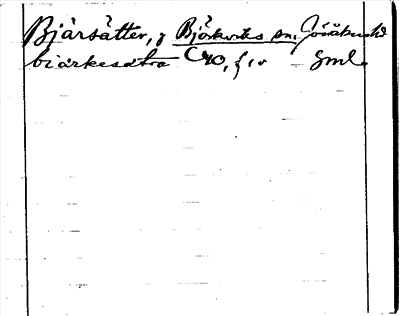 Bjärsätter, g Björkviks sn, Jönåkers hd
biärkesätra C40, f 10 — Sml.